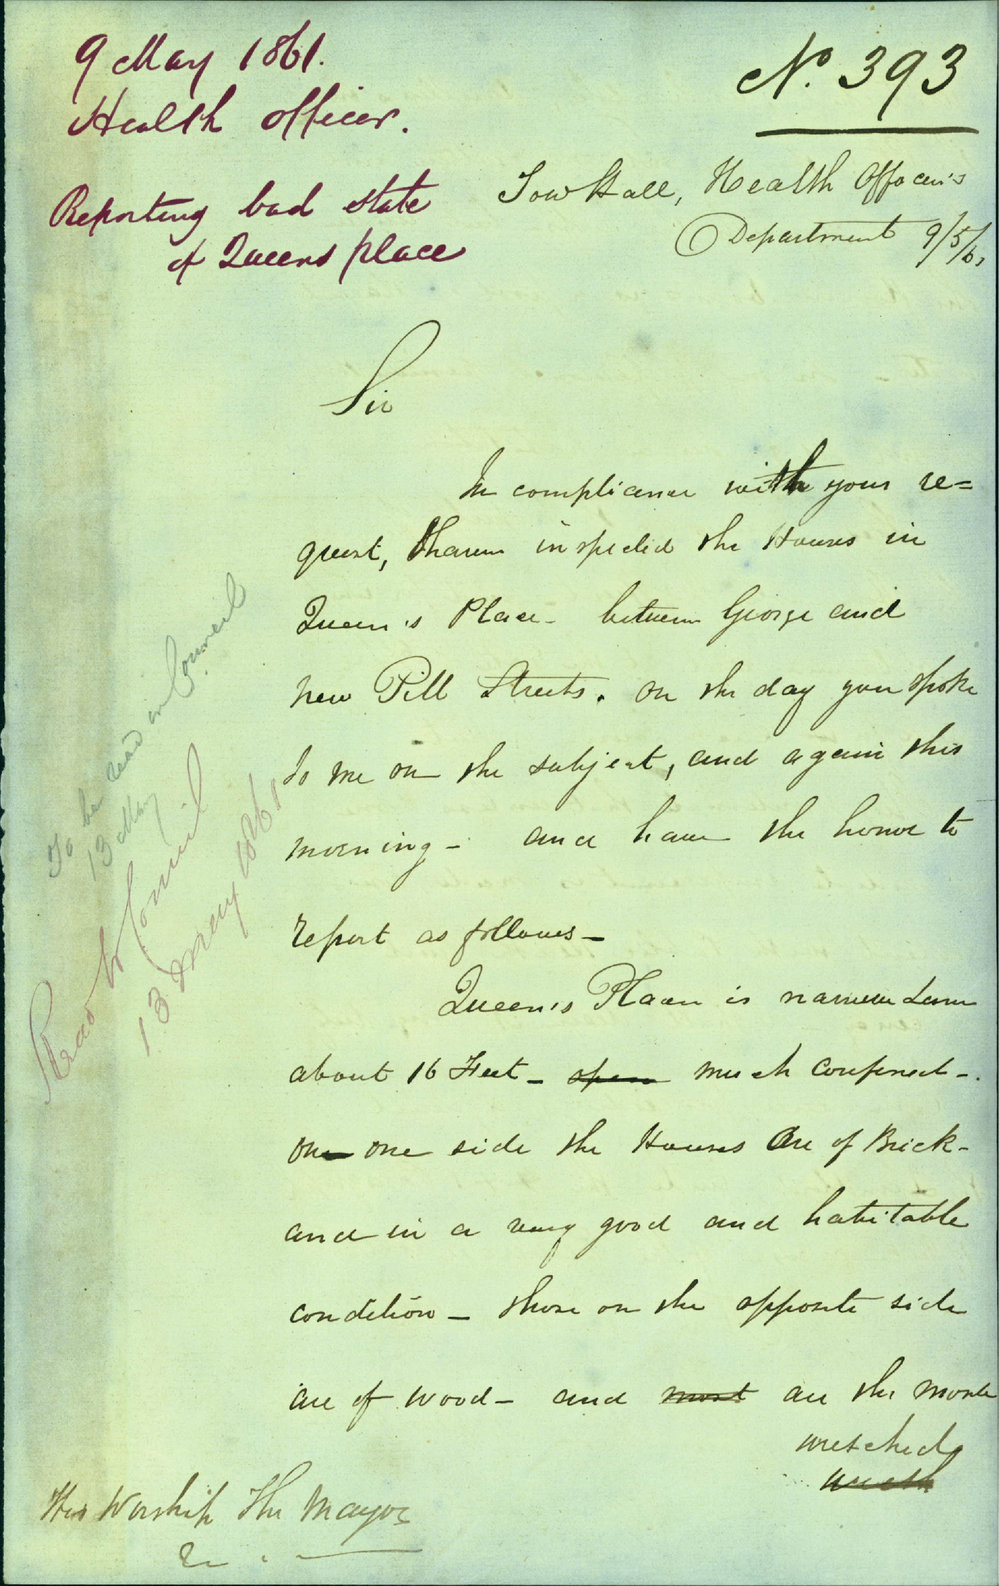 9 May 1861.
Health Officer.
Reporting bad state
of Queens place
No. 393
Town Hall, Health Officer's
Department 9/5/61
Sir
In compliance with your re=
quest, I have inspected the Houses in
Queen's Place - between George and
new Pitt Streets. on the day you spoke
to me on the subject, and again this
morning - and have the honor to
report as follows -
Queen's Place is narrow
about 16 Feet - open much confined -
on one side the Houses are of Brick -
and in a very good and habitable
condition - those on the opposite side
are of wood - and most are the most
wretched
wreth
His Worship The Mayor
To be read in Council
13 May
Read to Council
13 May 1861